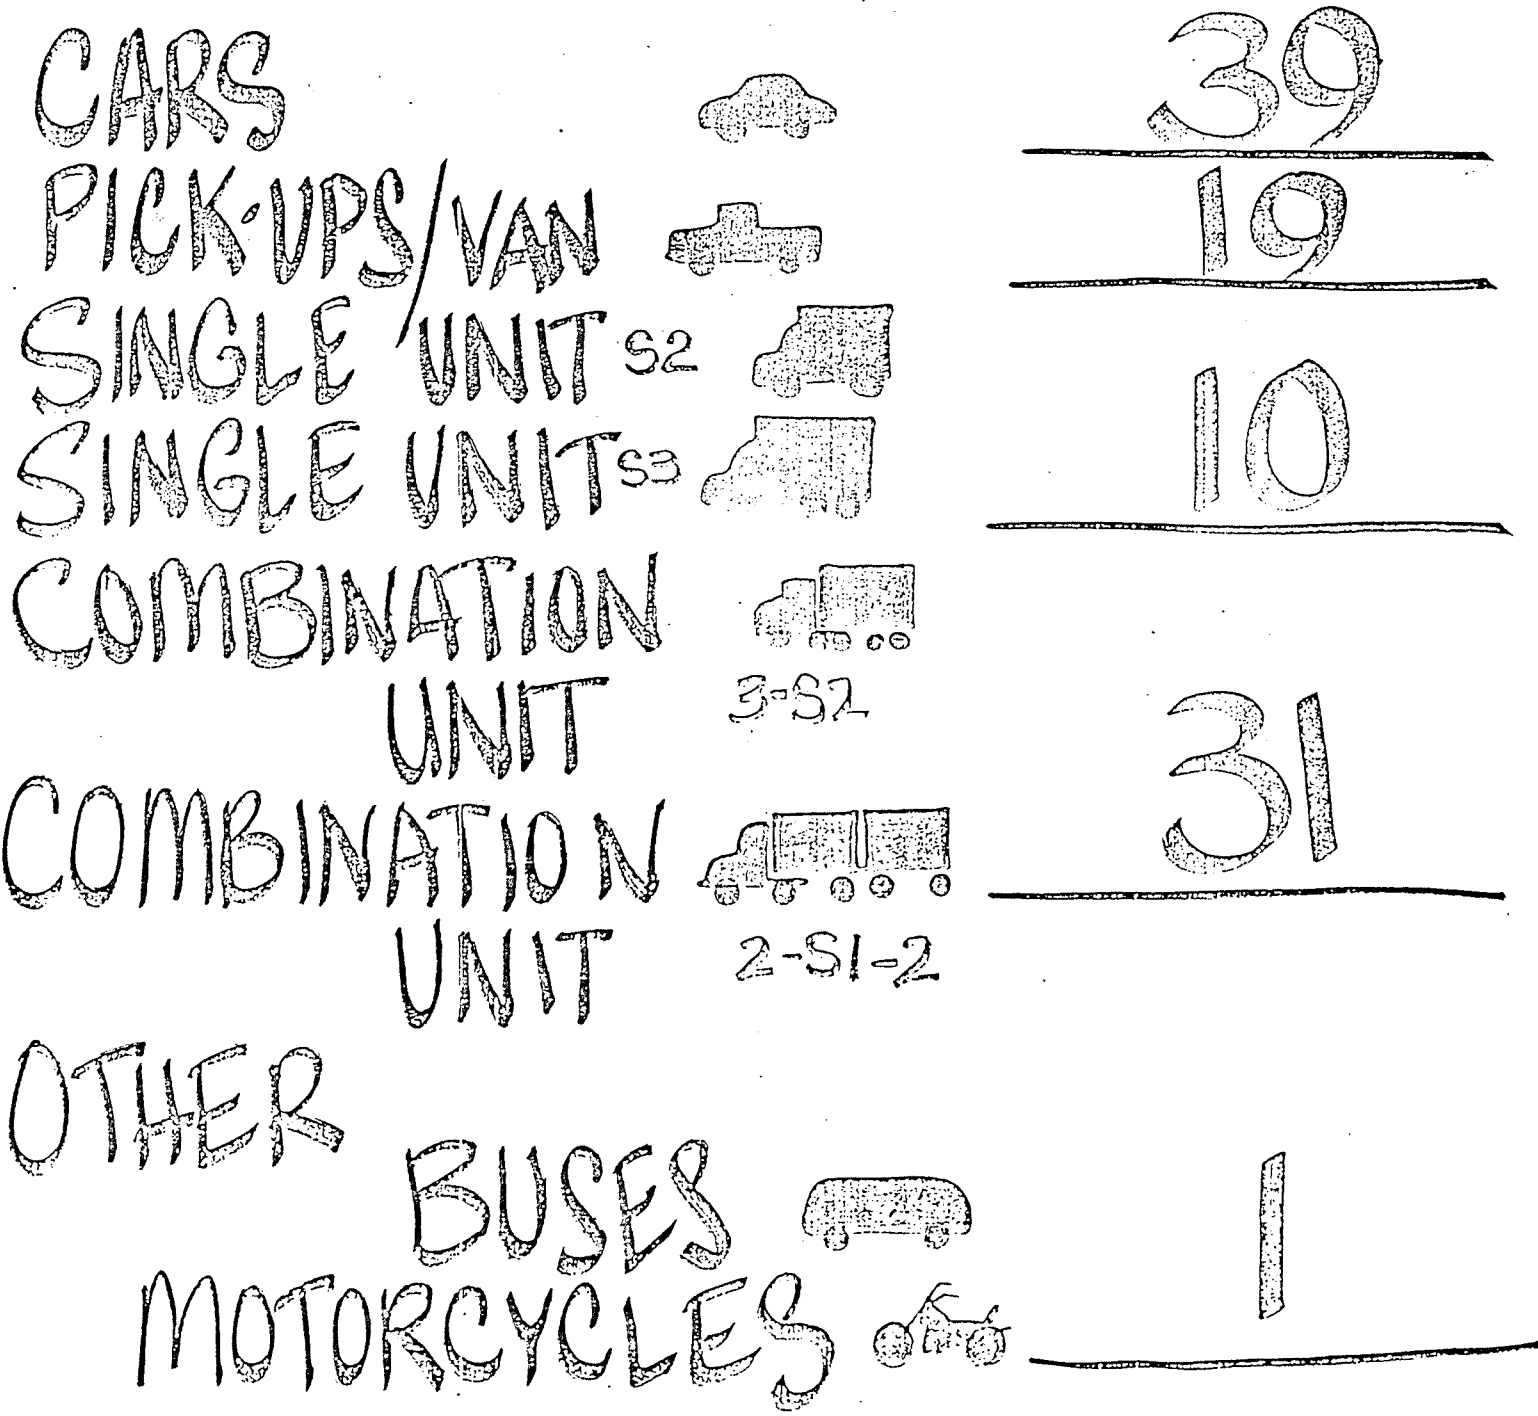 CARS 39
PICK-UPS/VAN 19
SINGLE UNIT S2
SINGLE UNIT S3 10
COMBINATION
UNIT 3-S2
31
COMBINATION
UNIT 2-S1-2
OTHER
BUSES
1
MOTORCYCLES